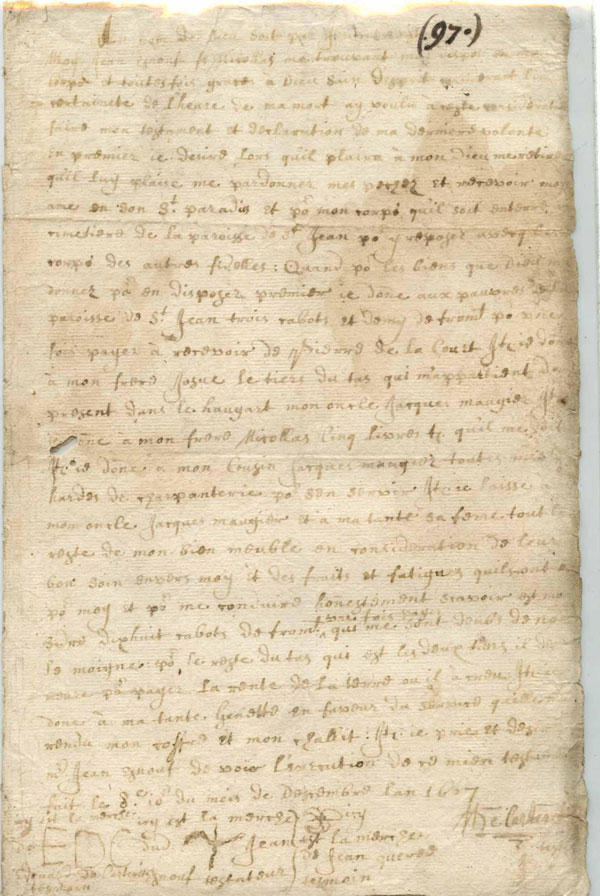 (97.)
Au nom de Dieu soit
Moy Jean Esnouf fs Nicollas me trouvant
corps et toutesfois graces a Dieu sain desprit
certainete de lheure de ma mort ay voulu
faire mon testament et declaration de ma derniere volonte
en premier ie desire lors quil plaira a mon Dieu me retirer
quil luy plaise me pardonner mes pechez et recevoir mon
ame en son St. paradis et po mon corps quil soit enterre
cimetiere de la paroisse de St Jean po y reposer avecq les
corps des autres fidelles: Quand po les biens que Dieu m
donnez po en disposer premier ie done aux pauvres de
paroisse de St. Jean trois cabots et demy de fromt po une
fois payer a recevoir de Pierre de la Court It: ie done
a mon frere Josue le tiers du tas qui mappartient
present dans le haugart mon oncle Jacques maugier It:
done a mon frere Nicollas Cinq livres tz quil me doit
It: ie done a mon Cousin Jacques maugier toutes mes
hardes de charpanterie po sen servir It: ie laisse a
mon oncle Jacques maugier et a ma tante sa feme tout le
reste de mon bien meuble en consideration de leur
bon soin envers moy et des fraits et fatigues quils ont
po moy et po me conduire honnestement scavoir est
dixhuit cabots de fromt une fois payer qui me sont deubs de
le moigne: po le reste du tas qui est les deux tiers il
po payer la rente de la terre ou il a creu It: ie
done a ma tante Genette en faveur du service quelle
rendu mon coffre et mon challit: It: ie prie et desire
mr Jean Esnouf de voir lexecution de ce mien testament
fait le 10e du mois de Dezembre lan 1607
cy est la merche
EDC
du dit Jean
Esnouf testateur
Cy
est la merche
de Jean queree
tesmoin